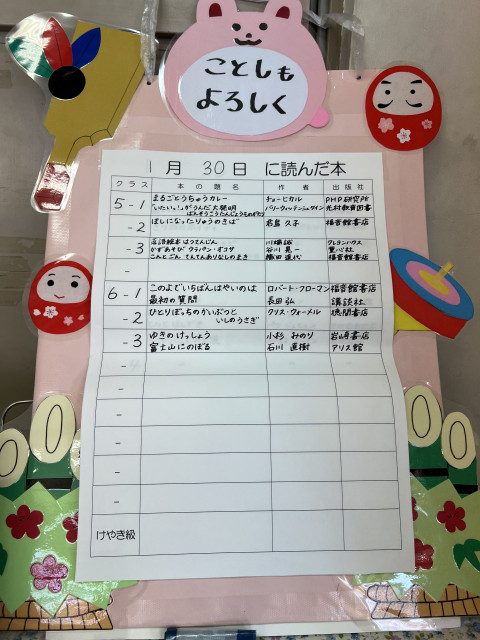 ことしも
よろしく
1月 30日 に読んだ本
クラス 本の題名 作者 出版社
5-1 まるごとうちゅうカレー チョーヒカル PHP研究所
"いたいっ!"がうんだ大発明 バリー・ウィッテンシュタイン 光村教育図書
ばんそうこうたんじょうものがたり
-2 ほしになったりゅうのきば 君島 久子 福音館書店
-3 かずあそび ウラパン・オコサ 谷川 晃一 童心社
てんてんありなしのまき 福音館書店
6-1 このよでいちばんはやいのは ロバート・フローマン 福音館書店
最初の質問 長田弘 講談社
-2 ひとりぼっちのかいぶつと クリス・ウォーメル 徳間書店
いしのうさぎ
-3 ゆきのけっしょう 小杉 みのり 岩崎書店
富士山にのぼる 石川 直樹 アリス館
-
-
-
-
-
けやき級